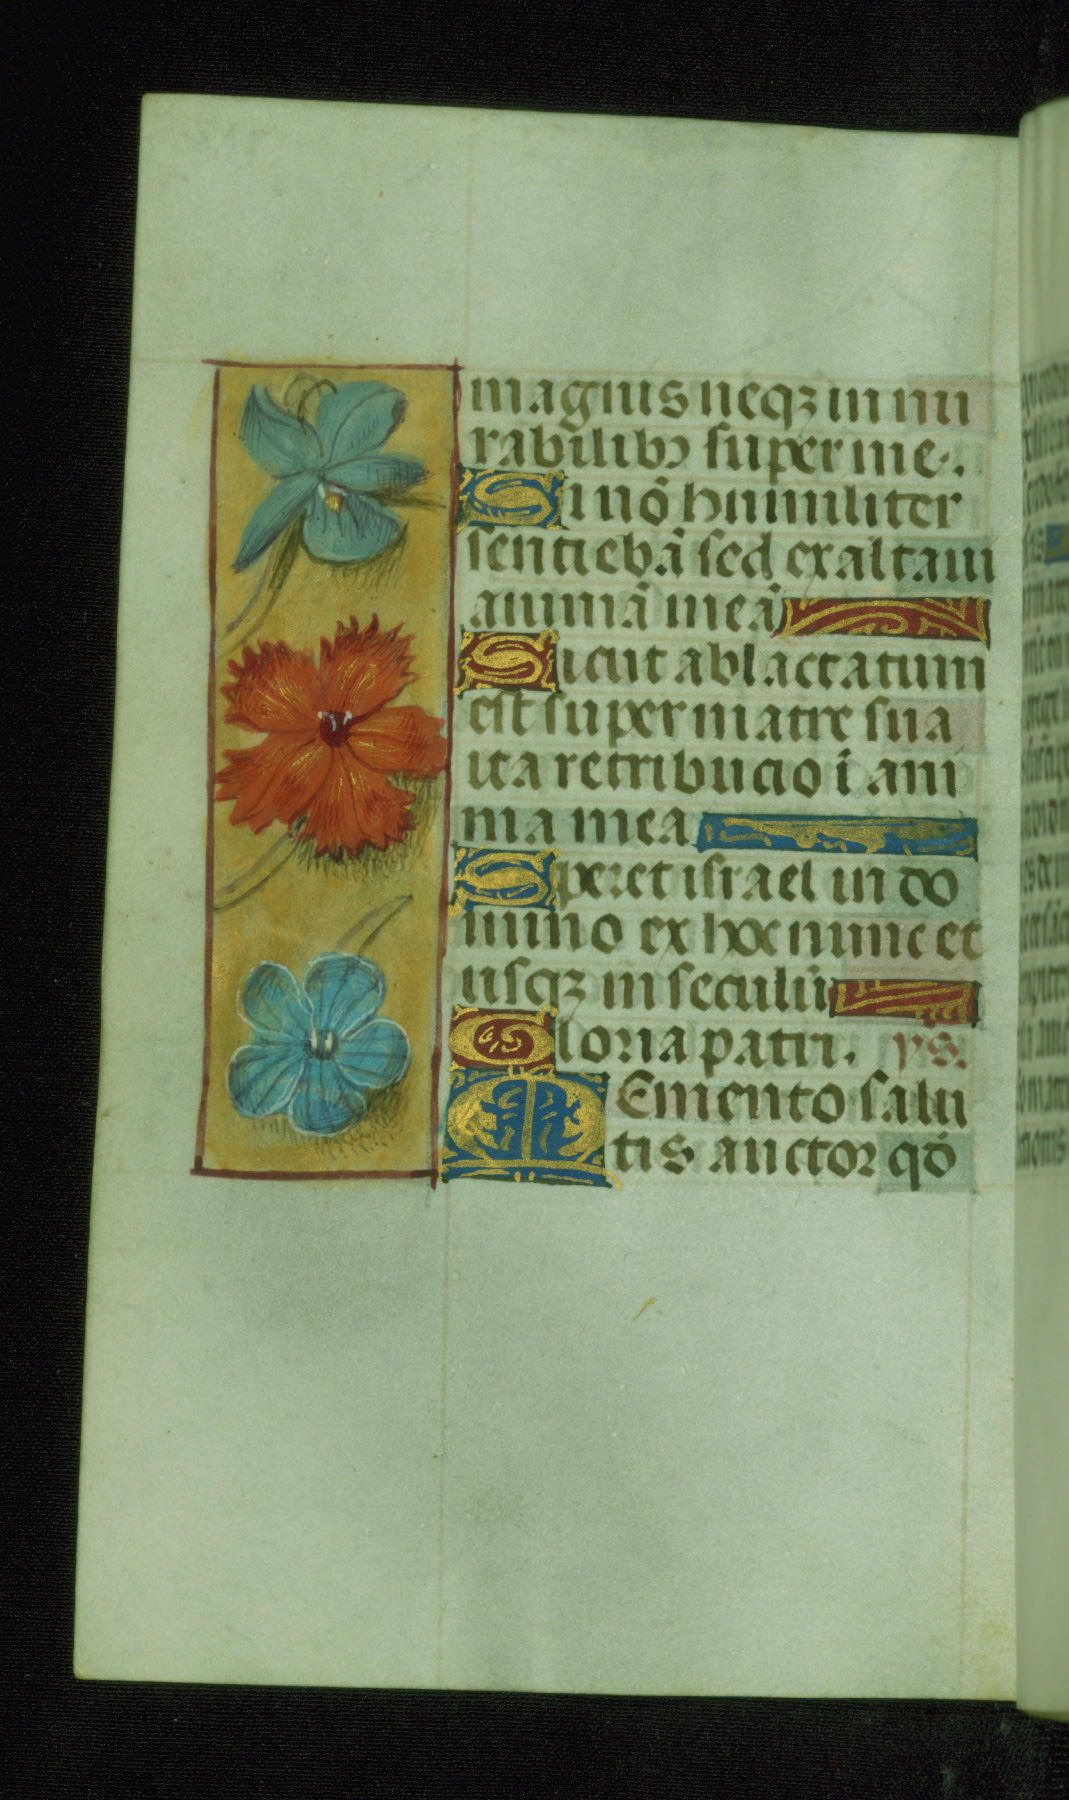 magnis neqꝫ in mi
rabilibꝰ super me.
Si nō humiliter
sentiebā sed exaltaui
animā meā
Sicut ablactatum
est super matre sua
ita retribucio ī ani
ma mea
Speret israel in do
mino ex hoc nunc et
usqꝫ in seculū
Gloria patri. ps.
MEmento salu
tis auctor qđ